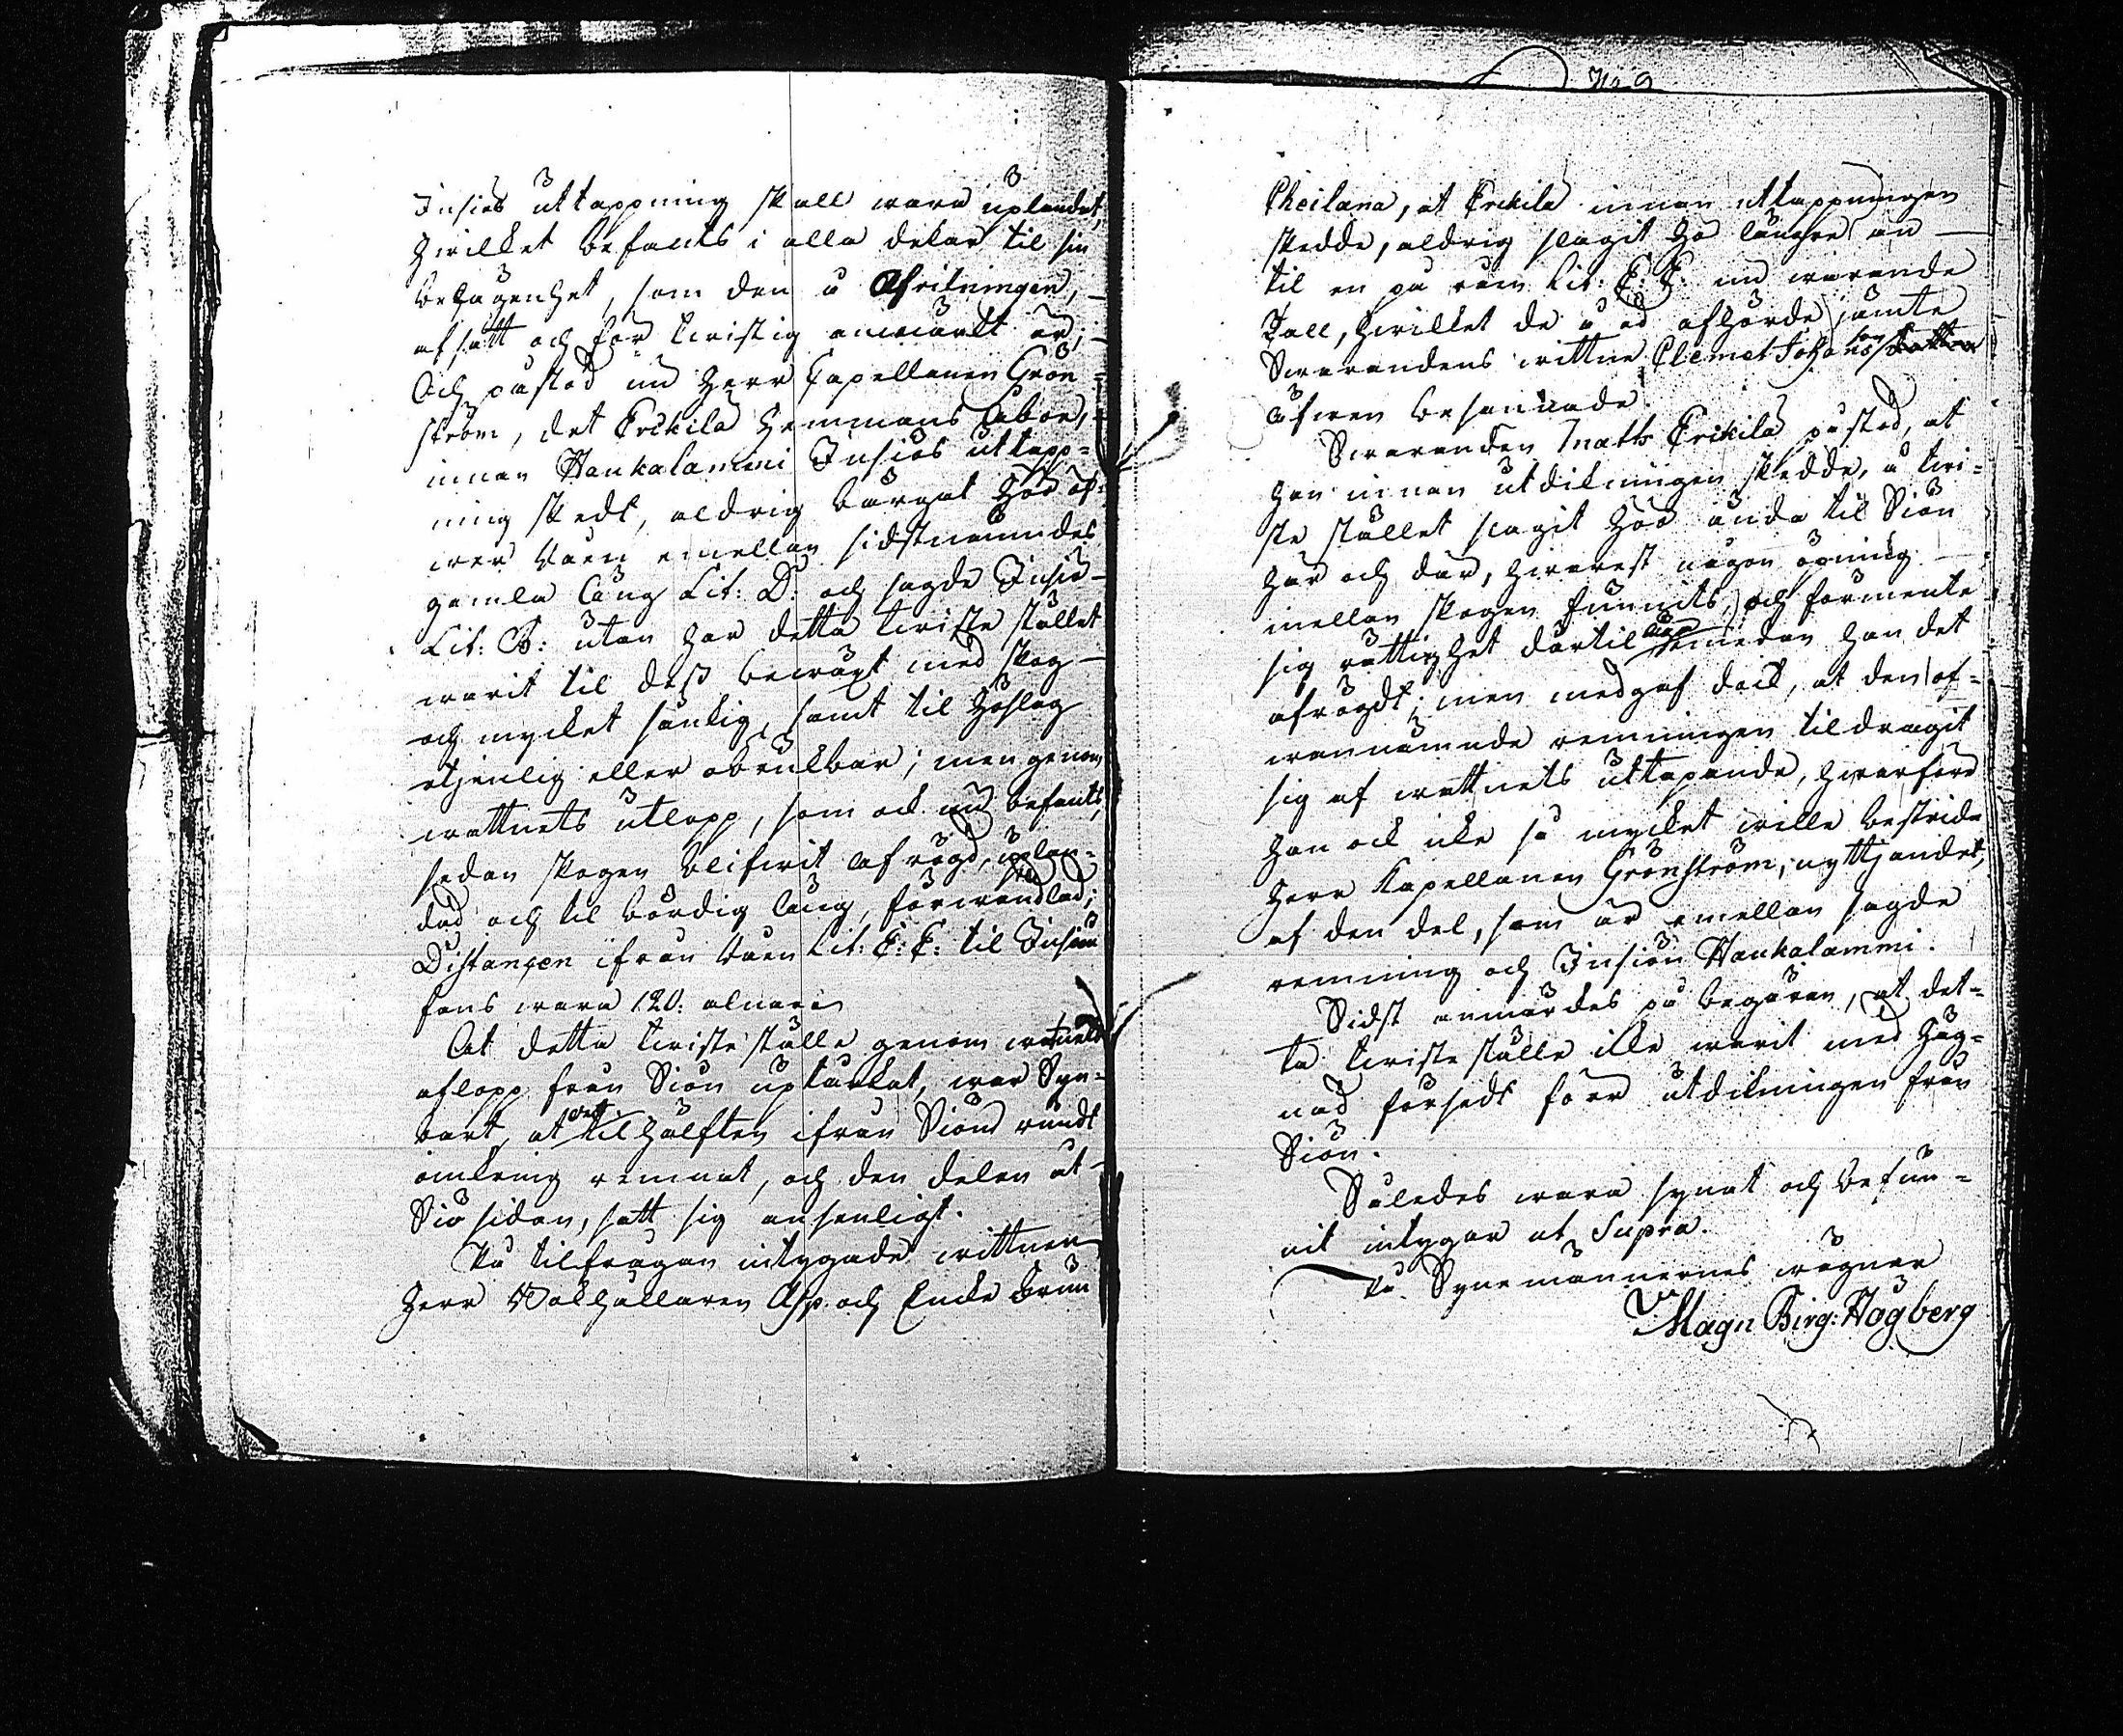 Insiös uttappning skall wara uplandat,
hwilket befants i alla delar til sin
belägenhet, som den å Afritningen,
afsatt och för twistig anmärkt är;
Och påstod nu Herr Capellanen Grön
ström, det Erikila Hemmans Åboer,
innan Haukalammi Insiös uttapp=
ning skedt, aldrig bärgat Höö öf=
wer Råen emellan sidstnämndes
gamla äng Lit: D. och sagde Insiö
Lit: B: utan har detta twiste stället
warit til dess bewäxt med skog
och mycket sankig, samt til Höslag
otjenlig eller obrukbar; men genom
wattnets utlopp, som ock nu befants,
sedan skogen blifwit afrögd, uplan=
dad och til bördig äng, förwandlad;
Distançen ifrån Råen Lit: E: F: til Insiön
fans wara 120: alnar.
At detta twiste ställe genom watnets
aflopp från Siön uptorkat, war Syn=
bart, at det til hälften ifrån Siön rundt
omkring remnat, och den delen åt
Siö sidan, satt sig ansenligt.
På tilfrågan intygade wittnen
Herr Bokhållaren Asp. och Enke Brun
729
Pheilana, at Erikila innan uttappningen
skedde, aldrig slagit Hö längre än
til en på råen Lit: E: F: nu warande
Tall, hwilket de å ed afhörde jämte
Swarandens wittne Clemet Johans son
äfwen besannade.
Swaranden Matts Erikila påstod, at
han innan utdikningen skedde, å twi=
ste stället slagit Höö ända til Siön
här och där, hwarest någon öpning
mellan skogen funnits, och förmente
sig rättighet därtil äga emedan han det
afrögdt; men medgaf dock, at den of=
wannämnde remningen tildragit
sig af wattnets uttapande, hwarföre
han ock icke så mycket wille bestrida
Herr Kapellanen Grönström, nyttjandet,
af den del, som är emellan sagde
remning och Insiön Haukalammi.
Sidst anmärdes på begäran, at det=
ta twiste ställe icke warit med Häg=
nad försedt förr utdikningen från
Siön.
Således wara synat och befun=
nit intygar ut Supra.
På Synemännernes wägnar
Magn Birg: Högberg